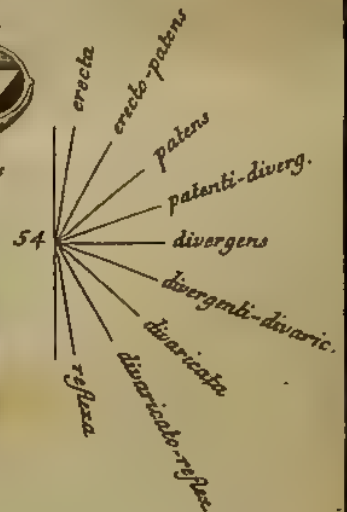 erecta
erecto-patens
patens
patenti-diverg.
54
divergens
divergenti-divaric.
divaricata
divaricato-reflex
reflexa